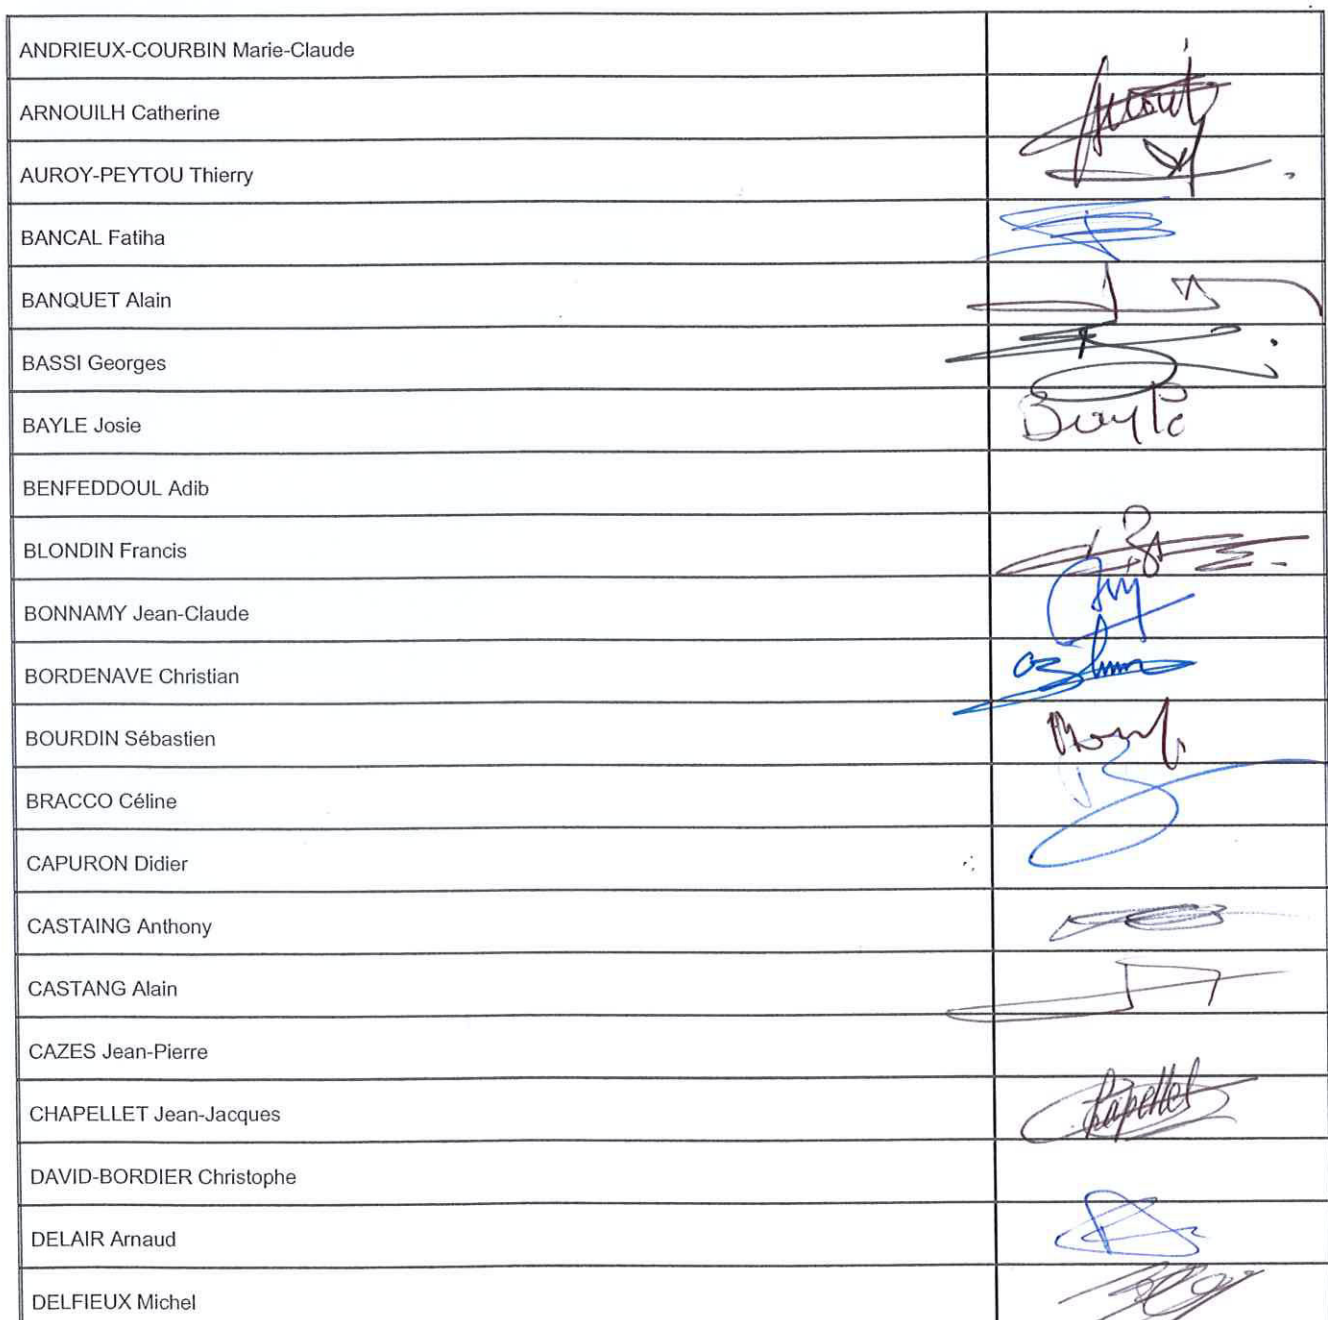 ANDRIEUX-COURBIN Marie-Claude
ARNOUILH Catherine
AUROY-PEYTOU Thierry
BANCAL Fatiha
BANQUET Alain
BASSI Georges
BAYLE Josie
Bayle
BENFEDDOUL Adib
BLONDIN Francis
BONNAMY Jean-Claude
BORDENAVE Christian
BOURDIN Sébastien
BRACCO Céline
CAPURON Didier
CASTAING Anthony
CASTANG Alain
CAZES Jean-Pierre
CHAPELLET Jean-Jacques
Chapellet
DAVID-BORDIER Christophe
DELAIR Arnaud
DELFIEUX Michel